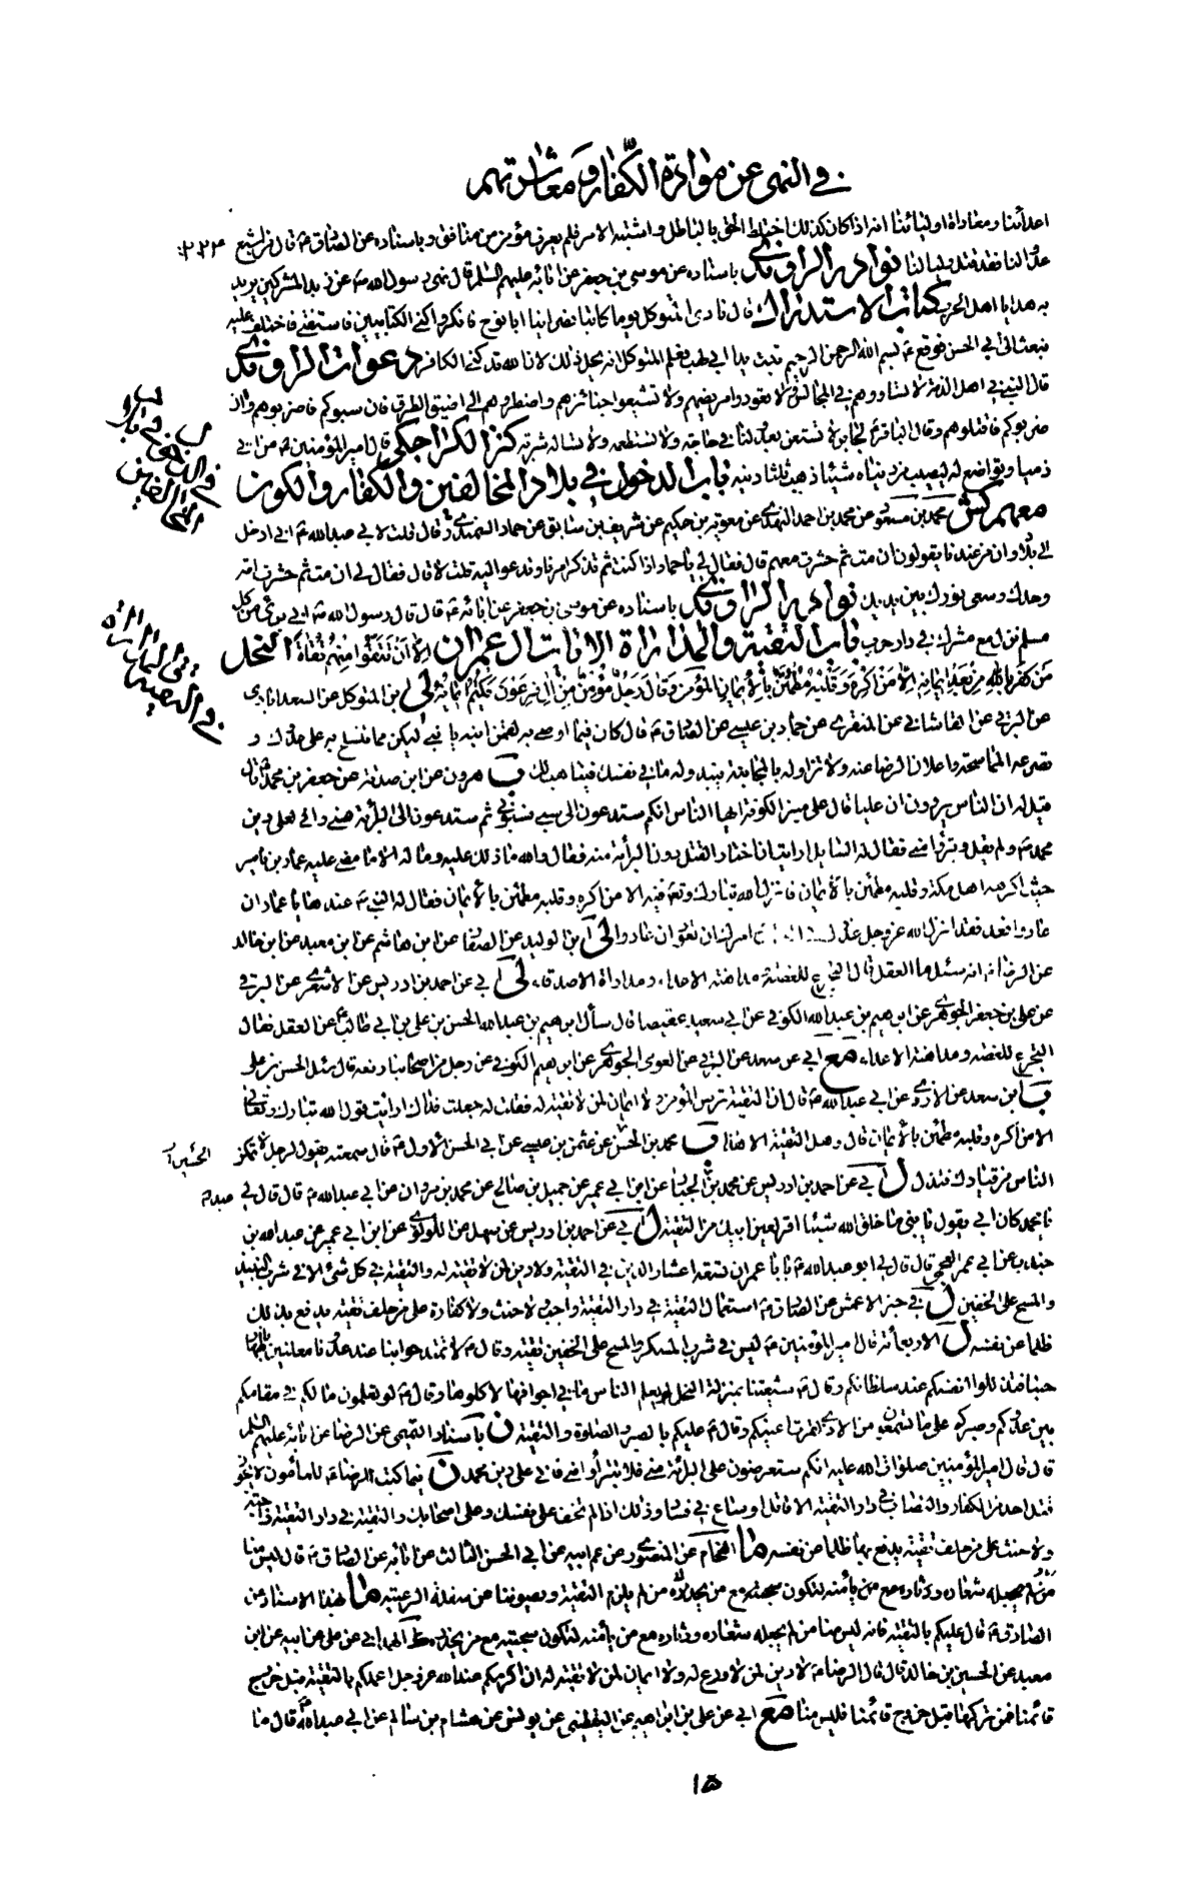 في النهى عن موادة الكفار و معاشرتهم
اعدائنا ومعاداة اوليائنا انه اذا كان كذلك اختلط الحق بالباطل واشتبه الامر فلم يعرف مؤمن من منافق وباسناده عن الصادق ع قال من اشبع
عدوا لنا فقد قتل وليا لنا نوادر الراوندى باسناده عن موسى بن جعفر عن آبائه عليهم السلم قال نهى رسول الله ص عن زبد المشركين يريد
به هدايا اهل الحرب كتاب الاستدراك قال نادى المتوكل يوما كاتبا نصرانيا ابا نوح فانكروا كنى الكتابيين فاستفتى فاختلف عليه
فبعث الى ابى الحسن فوقع ع بسم الله الرحمن الرحيم تبت يدا ابى لهب فعلم المتوكل انه يحل ذلك لان الله قد كنى الكافر دعوات الراوندى
قال النبى ص في اهل الذمة لا تساووهم في المجالس ولا تعودوا مريضهم ولا تشيعوا جنائزهم واضطروهم الى اضيق الطرق فان سبوكم فاضربوهم وان
ضربوكم فاقتلوهم وقال الباقر ع لجابر لا تستعن بعدو لنا في حاجة ولا تستطعمه ولا تسأله شربة كنز الكراجكى قال امير المؤمنين ع من اتى
ذميا وتواضع له ليصيب من دنياه شيئا ذهب ثلثا دينه باب الدخول في بلاد المخالفين والكفار والكون
معهم كش محمد بن مسعود عن محمد بن احمد النهدى عن معوية بن حكيم عن شريف بن سابق عن حماد السمندرى قال قلت لابى عبدالله ع انى ادخل
الى بلاد وان من عندنا يقولون ان مت ثم حشرت معهم قال فقال لى يا حماد اذا كنت ثم تذكر امرنا وتدعو اليه قلت لا قال فقال لى ان مت ثم حشرت امة
وحدك وسعى نورك بين يديك نوادر الراوندى باسناده عن موسى بن جعفر عن آبائه ع قال قال رسول الله ص انى برىء من كل
مسلم نزل مع مشرك في دار حرب باب التقية والمداراة الايات آل عمران الا ان تتقوا منهم تقاة النحل
من كفر بالله من بعد ايمانه الا من اكره وقلبه مطمئن بالايمان المؤمن وقال رجل مؤمن من آل فرعون يكتم ايمانه لى ابن المتوكل عن السعدابادى
عن البرقى عن القاشانى عن المنقرى عن حماد بن عيسى عن الصادق ع قال كان فيما اوصى به لقمن ابنه يا بنى ليكن مما تتسلح به على عدوك و
تصرعه المماسحة واعلان الرضا عنه ولا تزاوله بالمجانبة فيبدو له ما في نفسك فيتاهب لك ب هرون عن ابن صدقة عن جعفر بن محمد ع قال
قيل له ان الناس يروون ان عليا قال على منبر الكوفة ايها الناس انكم ستدعون الى سبى فسبونى ثم ستدعون الى البرائة منى وانى لعلى دين
محمد ص ولم يقل وتبرؤا منى فقال له السايل ارايت ان اختار القتل دون البرائة منه فقال والله ما ذلك عليه وما له الا ما مضى عليه عمار بن ياسر
حيث اكرهه اهل مكة وقلبه مطمئن بالايمان فانزل الله تبارك وتعالى فيه الا من اكره وقلبه مطمئن بالايمان فقال له النبى ص عندها يا عمار ان
عادوا فعد فقد انزل الله عز وجل عذرك امرك ان تعود ان عادوا لى ابن الوليد عن الصفار عن ابن هاشم عن ابن معبد عن ابن خالد
عن الرضا ع انه سئل ما العقل قال التجرع للغصة ومداهنة الاعداء ومداراة الاصدقاء لى ابى عن احمد بن ادريس عن الاشعرى عن البرقى
عن على بن جعفر الجوهرى عن ابرهيم بن عبدالله الكوفى عن ابى سعيد عقيصا قال سأل ابرهيم بن عبدالله الحسن بن على بن ابى طالب ع عن العقل فقال
التجرع للغصة ومداهنة الاعداء مع ابى عن سعد عن البرقى عن الجوهرى عن ابرهيم الكوفى عن رجل من اصحابنا رفعه قال سئل الحسن بن على
ب ابن سعد عن الازدى عن ابى عبدالله ع قال ان التقية ترس المؤمن ولا ايمان لمن لا تقية له فقلت له جعلت فداك ارايت قول الله تبارك وتعالى
الا من اكره وقلبه مطمئن بالايمان قال وهل التقية الا هذا ب محمد بن الحسن عن عثمن بن عيسى عن ابى الحسن الاول ع قال سمعته يقول لرجل لا تمكن
الناس من قيادك فتذل ل ابى عن احمد بن ادريس عن محمد بن ابى عمير عن جميل بن صالح عن محمد بن مروان عن ابى عبدالله ع قال قال لى
يا محمد كان ابى يقول يا بنى ما خلق الله شيئا اقر لعين ابيك من التقية ل ابى عن احمد بن ادريس عن سهل عن اللؤلؤى عن ابن ابى عمير عن عبدالله بن
جندب عن ابى عمر العجمى قال قال لى ابو عبدالله ع يا با عمران تسعة اعشار الدين في التقية ولا دين لمن لا تقية له والتقية في كل شىء الا في شرب النبيذ
والمسح على الخفين ل في خبر الاعمش عن الصادق ع استعمال التقية في دار التقية واجب ولا حنث ولا كفارة على من حلف تقية يدفع بذلك
ظلما عن نفسه ل الاربعمائة قال امير المؤمنين ع ليس في شرب المسكر والمسح على الخفين تقية وقال ع
شيعتنا بمنزلة النحل لو يعلم الناس ما في اجوافها لاكلوها وقال ع لو تعلمون ما لكم في مقامكم
بين عدوكم وصبركم على ما تسمعون من الاذى لقرت اعينكم وقال ع عليكم بالصبر والصلوة والتقية ن باسناد التميمى عن الرضا عن آبائه عليهم السلم
قال قال امير المؤمنين صلوات الله عليه انكم ستعرضون على البرائة منى فلا تتبرأوا منى فانى على دين محمد ن فيما كتب الرضا ع للمأمون لا يجوز
قتل احد من الكفار والنصاب في دار التقية الا قاتل او ساع في فساد وذلك اذا لم تخف على نفسك وعلى اصحابك والتقية في دار التقية واجبة
ولا حنث على من حلف تقية يدفع بها ظلما عن نفسه ما الفحام عن المنصورى عن عم ابيه عن ابى الحسن الثالث عن آبائه عن الصادق ع قال ليس منا
من لم يجعله شعاره ودثاره مع من يأمنه لتكون سجيته مع من يحذره ما بهذا الاسناد عن
الصادق ع قال عليكم بالتقية فانه ليس منا من لم يجعله شعاره ودثاره مع من يأمنه لتكون سجيته مع من يحذره ك الهمدانى عن على عن ابيه عن ابن
معبد عن الحسين بن خالد قال قال الرضا ع لا دين لمن لا ورع له ولا ايمان لمن لا تقية له ان اكرمكم عند الله عز وجل اعملكم بالتقية قبل خروج
قائمنا فمن تركها قبل خروج قائمنا فليس منا مع ابى عن على بن ابراهيم عن اليقطينى عن يونس عن هشام بن سالم عن ابى عبدالله ع قال ما
١٥